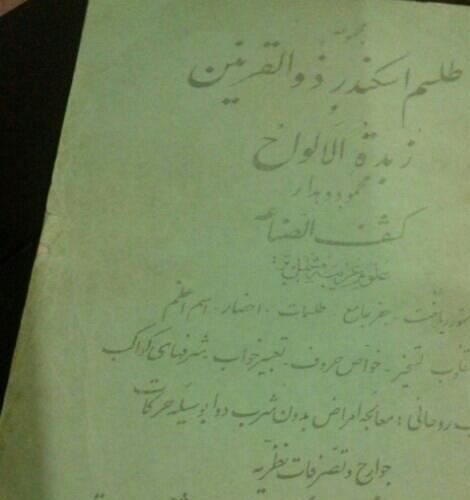 مجموعه
طلسم اسکندر ذوالقرنین
و
زبدة الالواح
محمود دهدار
کشف الصنایع
علوم غریبه مشتمل بر:
جفر جامع - طلسمات - احضار - اسم اعظم
تسخیر - خواص حروف - تعبیر خواب - شرفهای کواکب
روحانی: معالجه امراض بدون شرب دوا بوسیله حرکات
جوارح و تصرفات نظریه